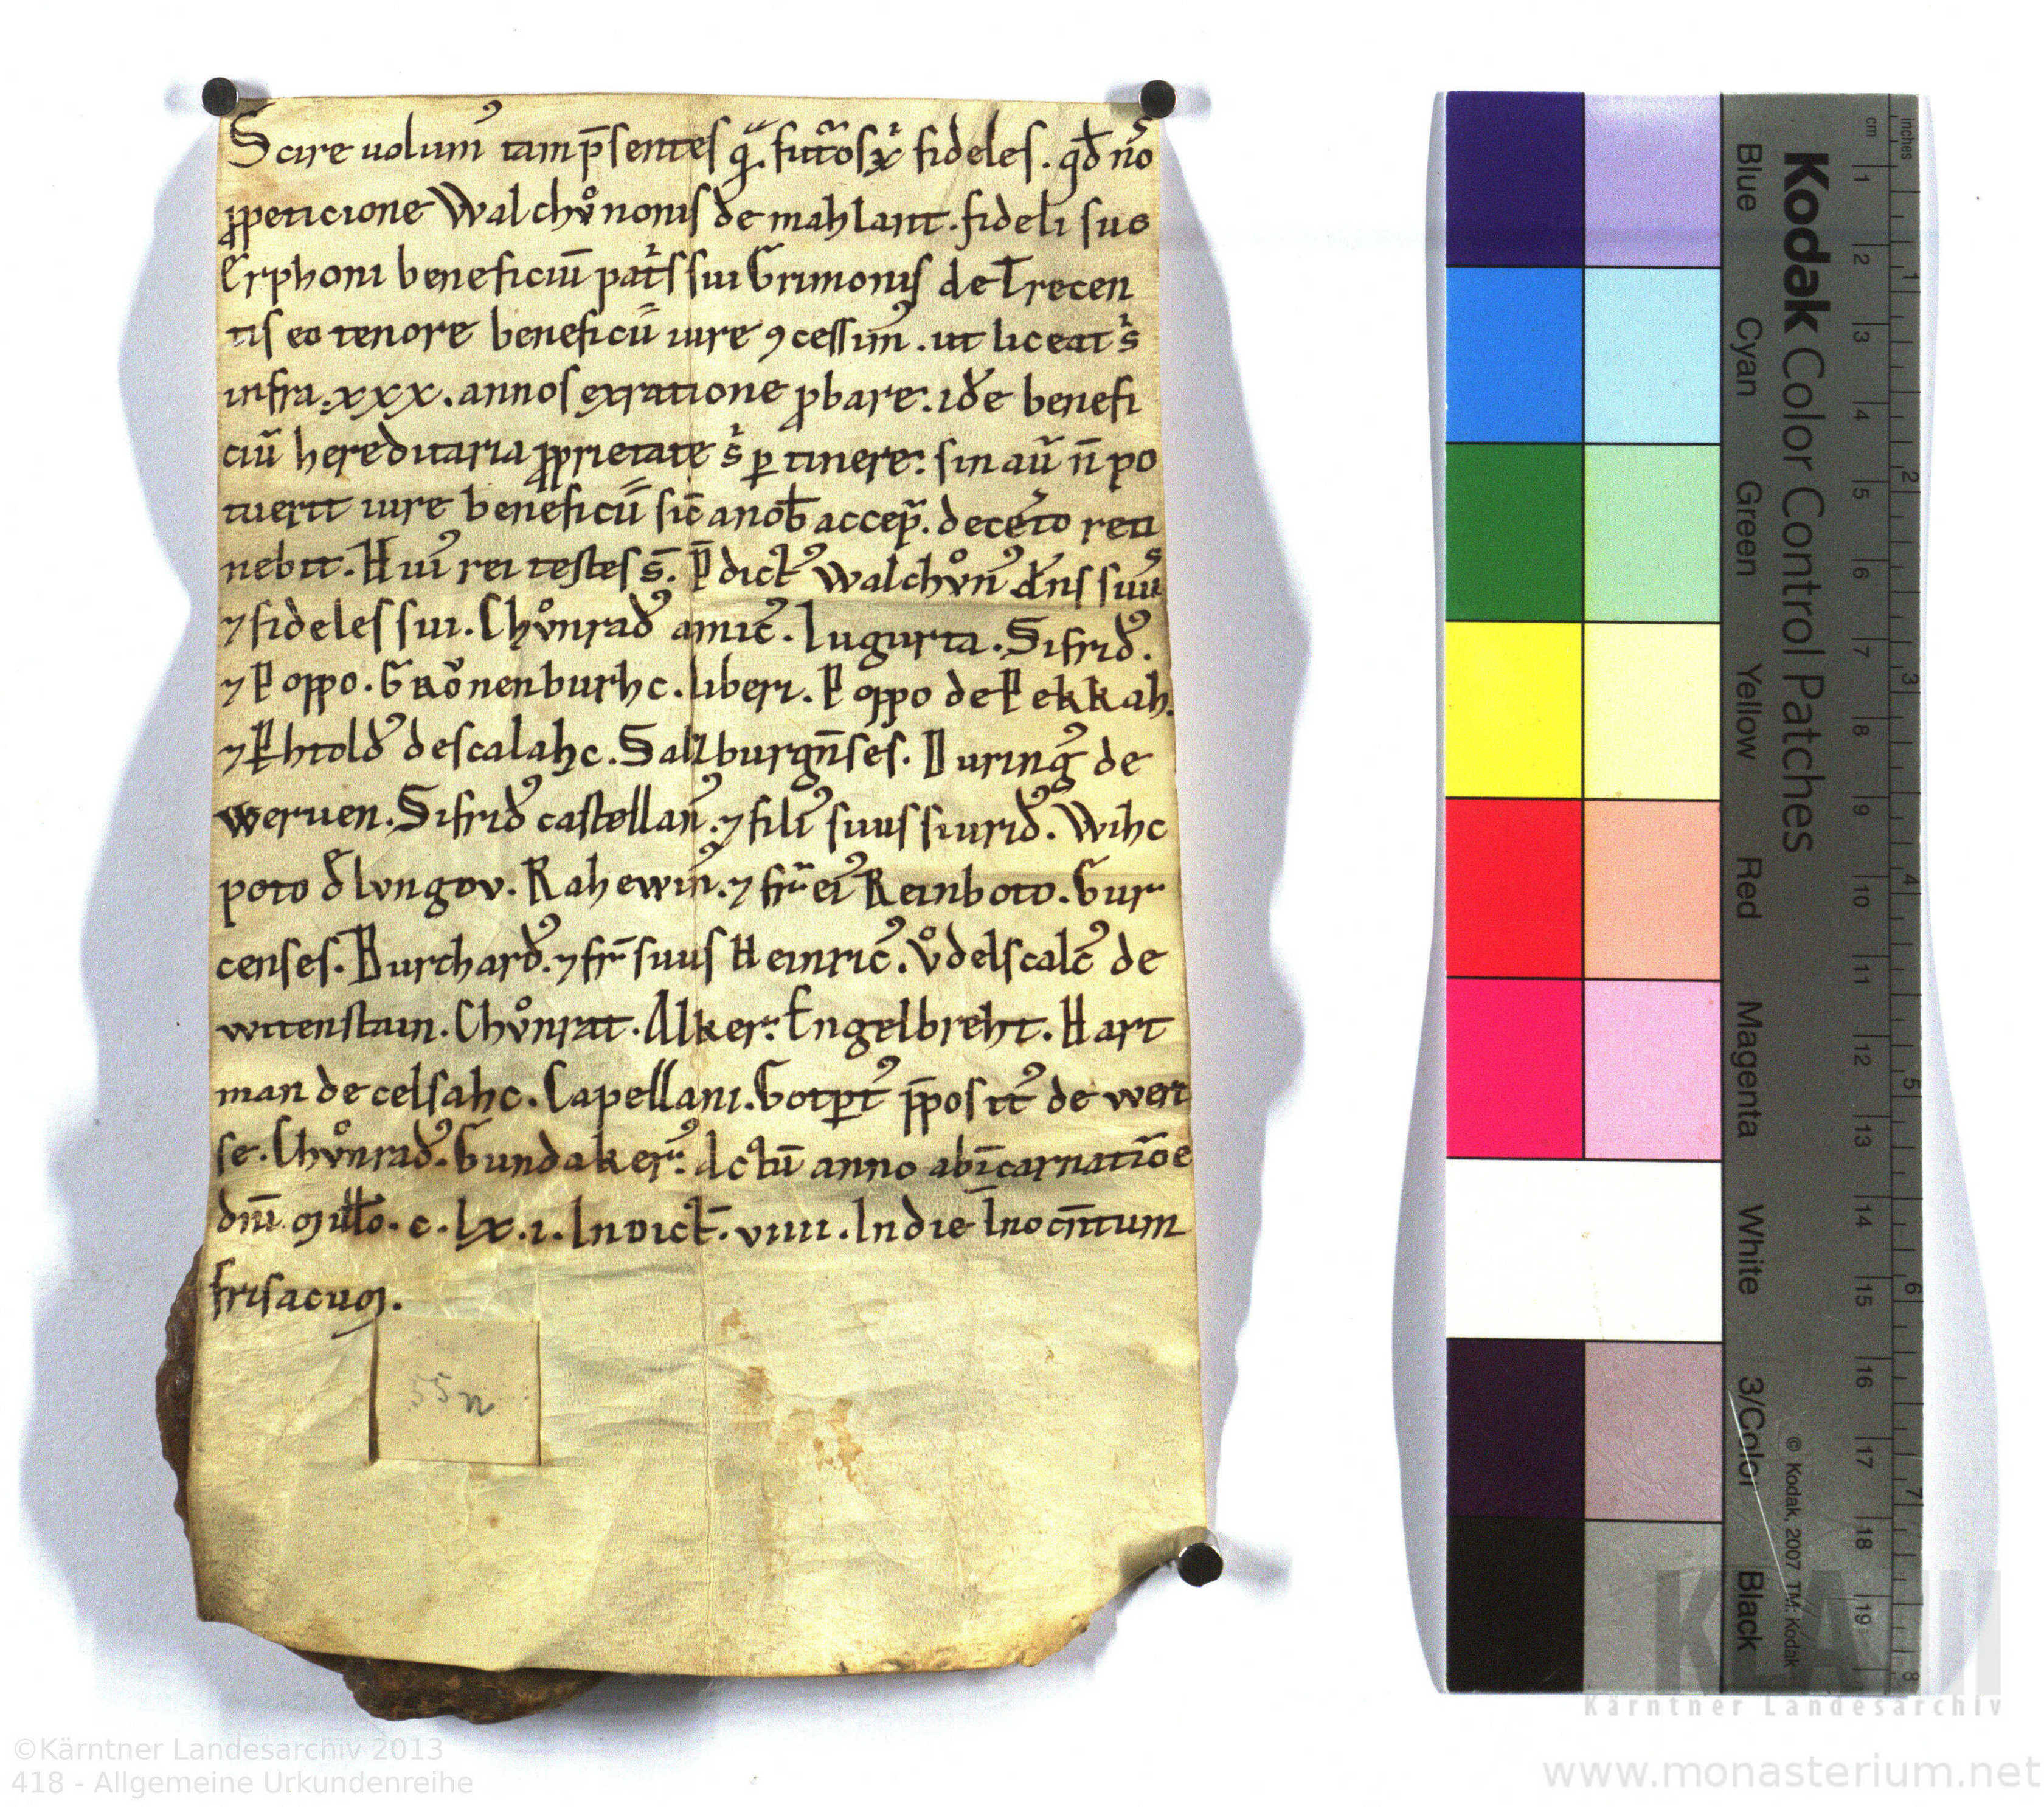 Scire uolum᾿ tam p̄sentes q̃. futõs x̓ fideles. qđ nõs
ꝓpeticione Walchůnonis de mahlant. fideli suo
Erphoni beneficiū pat̓s sui Grimonis de Trecen
tis eo tenore beneficii iure ꝯcessim᾿. ut liceat s̓
infra. xxx. annos ex ratione ꝓbare. idē benefi
ciū hereditaria ꝓprietate s̓ ꝑtinere. sin aū n̄ po
tuerit iure beneficii sic̄ a nob̄ accep̃. de cet̃o reti
nebit. Hui᾿ rei testes s̄. P̄dict᾿ Walchůn᾿ dn̄s suus
⁊ fideles sui. Chůnrad᾿ amic᾿. Iugurta. Sifrid᾿.
⁊ Poppo. Grǒnenburhc. liberi. Poppo de Pekkah.
⁊ Ꝑhtold᾿ de scalahc. Salzburgn̄ses. During᾿ de
weruen. Sifrid᾿ castellan᾿. ⁊ fili᾿ suus siurid᾿. Wihc
poto đ lvngov. Rahewin᾿. ⁊ fr̃ ei᾿ Reinboto. Gur
censes. Burchard᾿. ⁊ fr̃ suus Heinric᾿. Ůdelscalc᾿ de
witenstain. Chůnrat. Alker. Engelbreht. Hart
man de celsahc. Capellani. Gotꝑt᾿ p̄posit᾿ de wert
se. Chůnrad᾿. Gundaker᾿. Actū anno ab īcarnatiōe
dnī mill̄o. c. lx. i. Indict̄. viiii. In die Īnocn̄tum
frisacum.
55 n
Kodak Color Control Patches
Blue
Cyan
Green
Yellow
Red
Magenta
White
3/Color
Black
cm
1
2
3
4
5
6
7
8
9
10
11
12
13
14
15
16
17
18
19
inches
1
2
3
4
5
6
7
8
© Kodak, 2007 TM: Kodak
KLA
Kärntner Landesarchiv
©Kärntner Landesarchiv 2013
418 - Allgemeine Urkundenreihe
www.monasterium.net